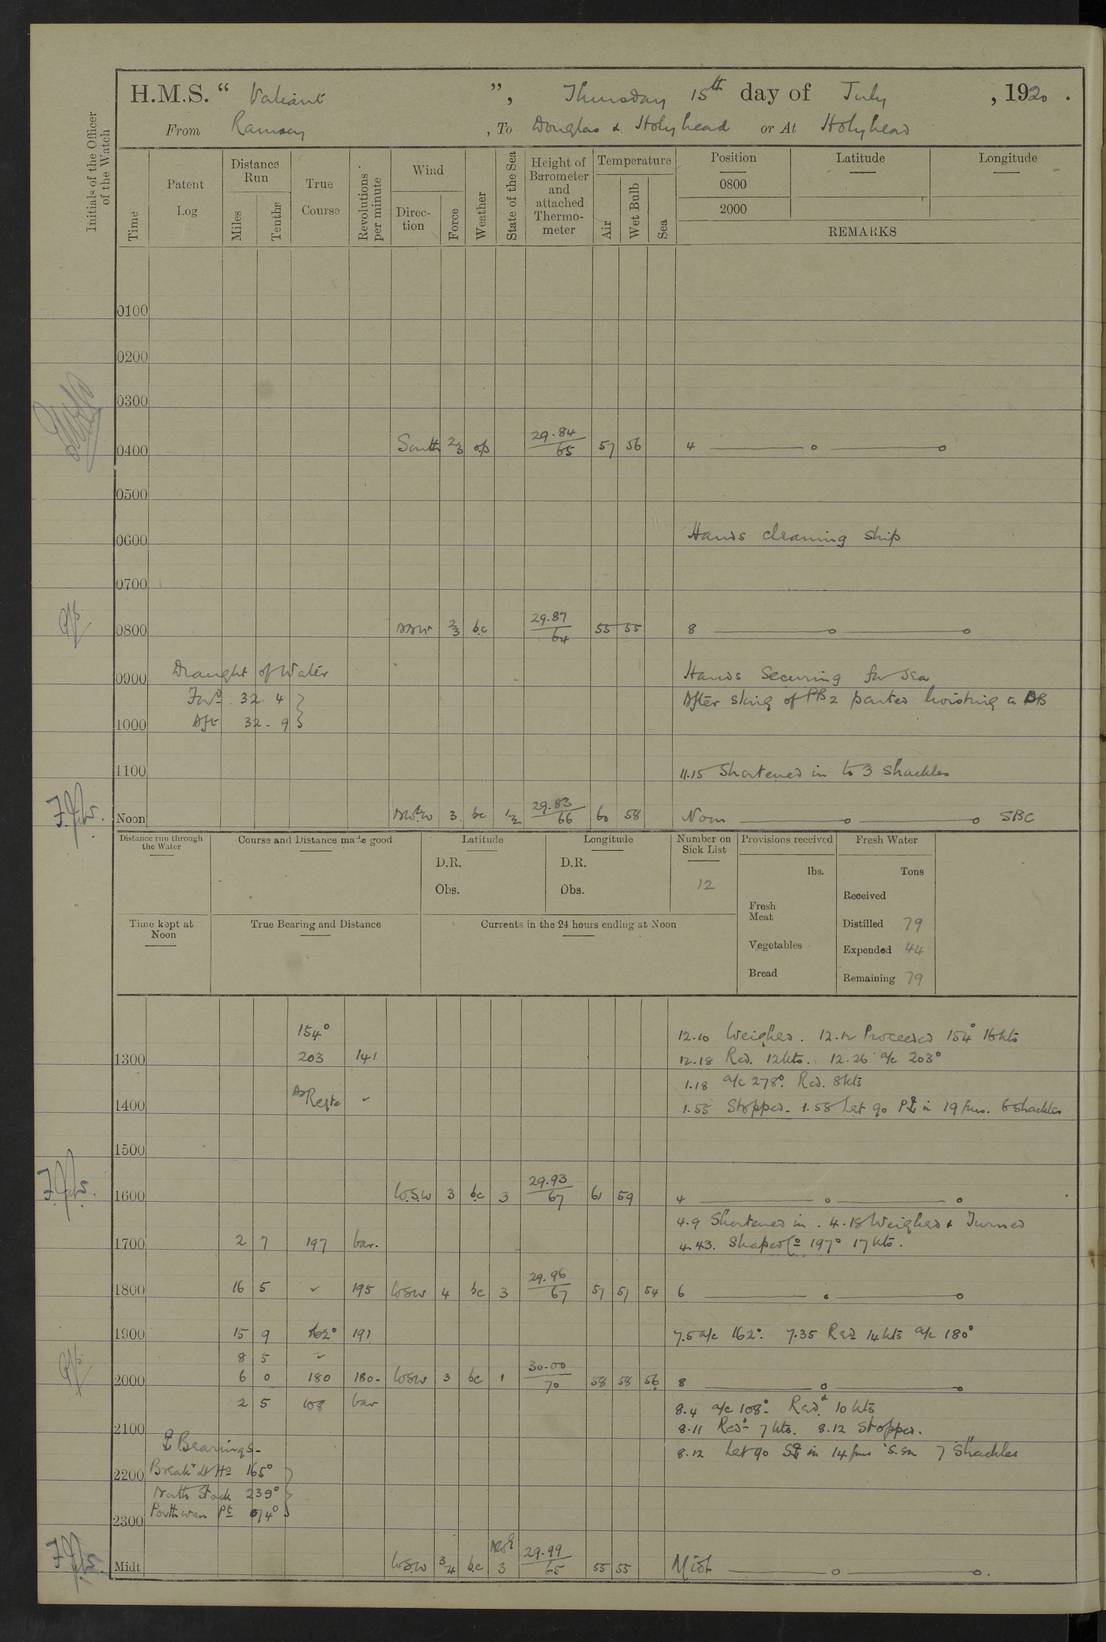 H.M.S. “ Valiant ”, Thursday 15th day of July , 1920 .
From Ramsey , To Douglas & Holyhead or At Holyhead
Initials of the Officer of the Watch
Time
Patent Log
Distance Run
Miles
Tenths
True Course
Revolutions per minute
Wind
Direction
Force
Weather
State of the Sea
Height of Barometer and attached Thermometer
Temperature
Air
Wet Bulb
Sea
Position
0800
2000
Latitude
Longitude
REMARKS
0100
0200
0300
0400 South 2/3 op 29.84 65 57 56 4
0500
0600 Hands cleaning ship
0700
0800 2/3 bc 29.87 64 55 55 8
Draught of Water
0900 Hands Securing for Sea
Forд 32. 4
After of PB2 parted hoisting a PB
Aft 32 - 9
1000
1100 11.15 Shortened in to 3 shackles
Noon 3. bc 1/2 29.83 66 60 58 Noon SBC
Distance run through the Water
Course and Distance made good
Latitude
D.R.
Obs.
Longitude
D.R.
Obs.
Number on Sick List
12
Provisions received
lbs.
Fresh Meat
Vegetables
Bread
Fresh Water
Tons
Received
Distilled 79
Expended 44
Remaining 79
Time kept at Noon
True Bearing and Distance
Currents in the 24 hours ending at Noon
154° 12.10 Weighed. 12.12 Proceeded 154° 16kts
1300 203 141 12.18 Red. 12kts. 12.26 a/c 203°
1.18 a/c 278°. Red. 8kts
1400 As Reqte 1.55 Stopped. 1.58 Let go in 19 fms. 6 shackles
1500
1600 W.S.W 3 bc 3 29.93 67 61 59 4
4.9 Shortened in. 4.18 Weighed & Turned
1700 2 7 197 bar. 4.43. Shaped Co 197° 17kts.
1800 16 5 195 WSW 4 bc 3 29.96 67 57 57 54 6
1900 15 9 162° 191 7.5 a/c 162°. 7.35 Red 14kts a/c 180°
8 5
2000 6 0 180 180- WSW 3 bc 1 30.00 70 58 58 56 8
2 5 108 bar 8.4 a/c 108°. Red. 10 kts
2100 8.11 Red. 7 kts. 8.12 Stopped.
Bearings-
8.12 Let go in 14 fms 7 Shackles
2200 Breakr Lt Ho 165°
North Stack 239°
2300 Porthwan Pt 074°
Midt WSW 3/4 bc 3 29.99 65 55 55 Midt